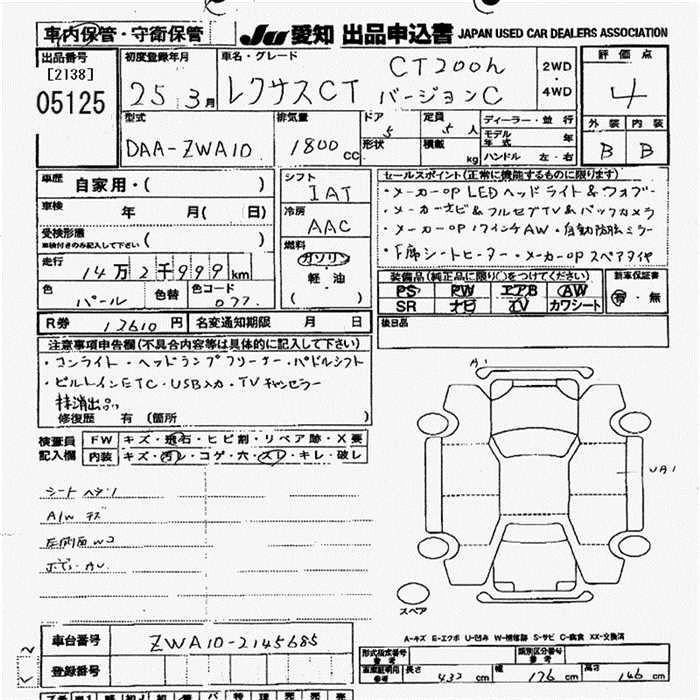 車内保管・守衛保管
JU 愛知 出品申込書 JAPAN USED CAR DEALERS ASSOCIATION
出品番号
[2138]
05125
初度登録年月
25 3月
車名・グレード
レクサスCT
CT200h
バージョンC
2WD
・
4WD
評価点
4
外装 内装
B B
型式
DAA-ZWA10
排気量
1800 cc
ドア 5
形状
定員 5 人
積載 kg
ディーラー・並行
モデル年式 年
ハンドル 左・右
車歴 自家用・( )
車検 年 月( 日)
受検形態
※検付きのみ記入して下さい ( )
走行
14万2千999km
色
パール
色替
色コード
077
シフト
IAT
冷房
AAC
燃料
ガソリン
軽・油
( )
セールスポイント(正常に機能するものに限ります)
・メーカーOP LEDヘッドライト&フォグ
・メーカーナビ&フルセグTV&バックカメラ
・メーカーOP 17インチAW・自動防眩ミラー
・F席シートヒーター・メーカーOPスペアタイヤ
装備品(純正品に限り○をつけてください)
PS PW エアB AW
SR ナビ TV カワシート
新車保証書
有・無
後日品
R券 12610 円 名変通知期限 月 日
注意事項申告欄(不具合内容等は具体的に記入して下さい)
・コンライト・ヘッドランプクリーナー・パドルシフト
・ビルトインETC・USB入力・TVキャンセラー
抹消出品
修復歴 有 (箇所 )
検査員
記入欄
FW キズ・飛石・ヒビ割・リペア跡・X要
内装 キズ・汚レ・コゲ・穴・スレ・キレ・破レ
シートヘタリ
A/W キズ
左側面 W2
ボディ AU
A1
UA1
スペア
A-キズ E-エクボ U-凹み W-補修跡 S-サビ C-腐食 XX-交換済
車台番号 ZWA10-2145685
登録番号
型式指定番号
類別区分番号
長さ 432 cm 幅 176 cm 高さ 146 cm